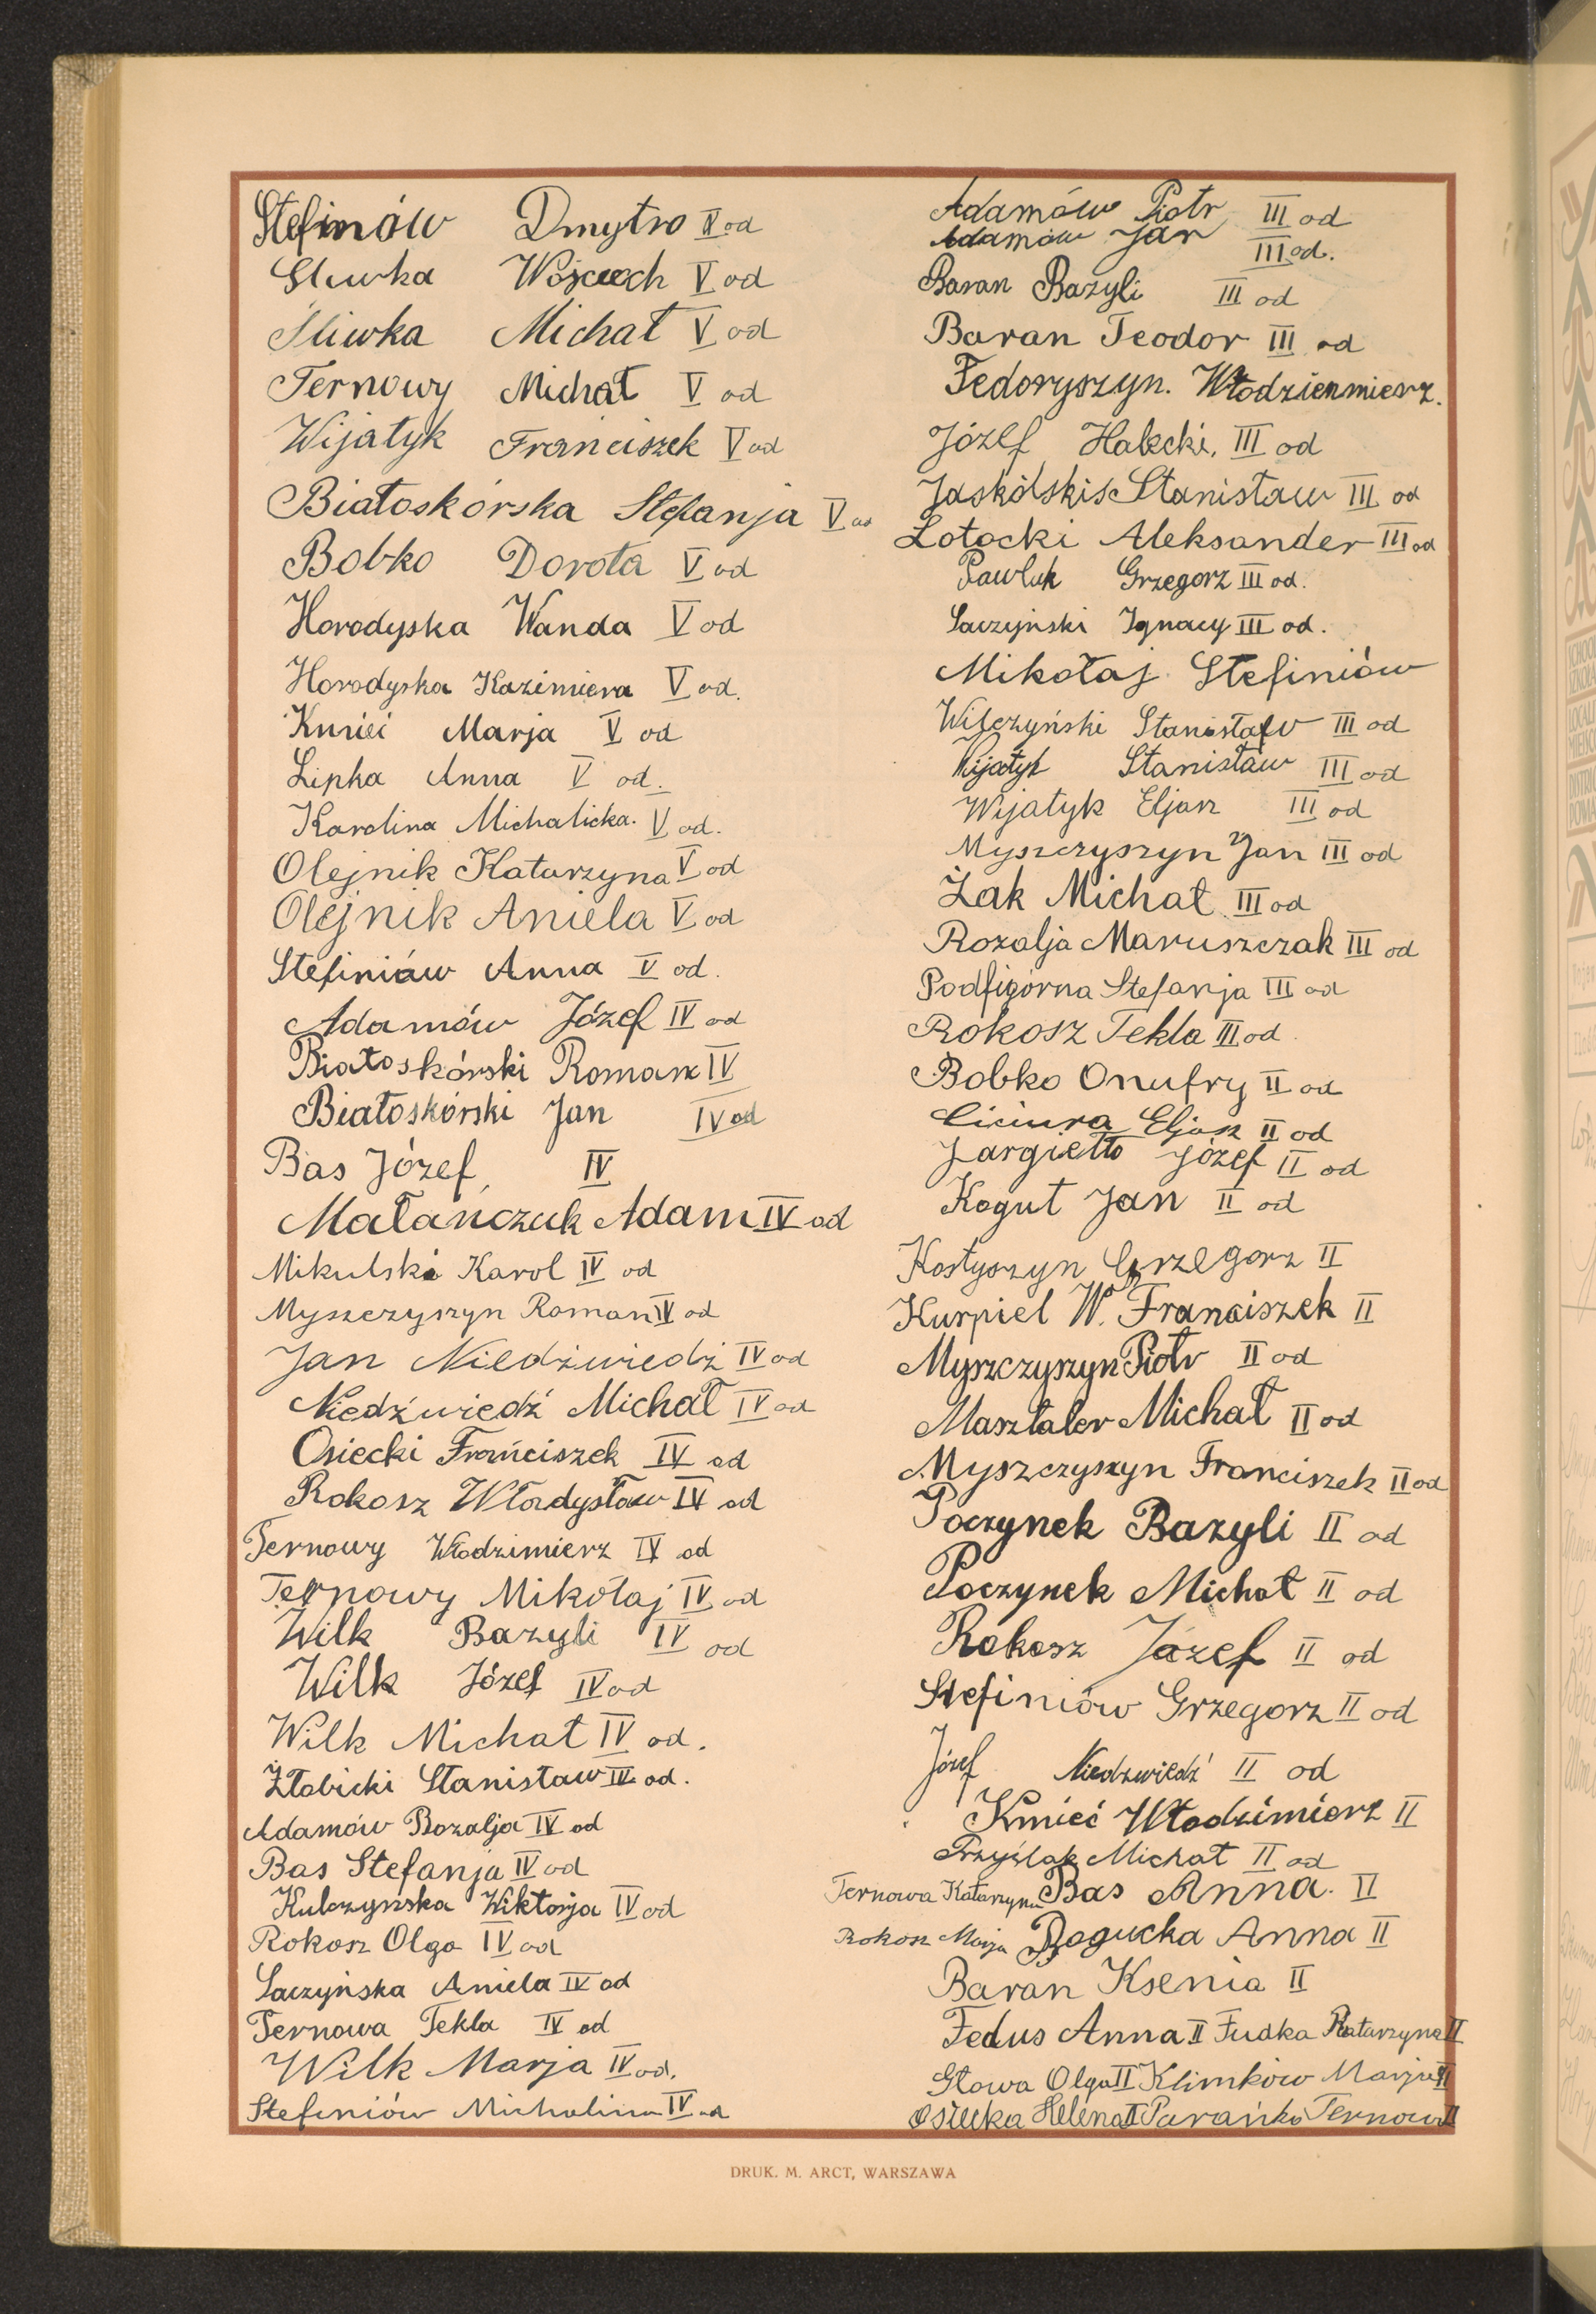 Stefinów Dmytro V od
Sliwka Wojciech V od
Śliwka Michał V od
Ternowy Michał V od
Wijatyk Franciszek V od
Białoskórska Stefanja V od
Bobko Dorota V od
Horodyska Wanda V od
Horodyska Kazimiera V od.
Marja V od
Lipka Anna V od.
Karolina Michalicka. V od.
Olejnik Katarzyna V od
Olejnik Aniela V od
Stefiniów Anna V od.
Adamów Józef IV od
Białoskórski Roman IV
Białoskórski Jan IV od
Bas Józef, IV
Małańczuk Adam IV od
Mikulski Karol IV od
Myszczyszyn Roman IV od
Jan Niedźwiedź IV od
Niedźwiedź Michał IV od
Osiecki Franciszek IV od
Rokosz Władysław IV od
Ternowy Włodzimierz IV od
Ternowy Mikołaj IV od
Wilk Bazyli IV od
Wilk Józef IV od
Wilk Michał IV od.
Żłobicki Stanisław IV od.
Adamów Rozalja IV od
Bas Stefanja IV od
Kulczyńska Wiktorja IV od
Rokosz Olga IV od
Saczyńska Aniela IV od
Ternowa Tekla IV od
Wilk Marja IV od.
Stefiniów Michalina IV od
Adamów Piotr III od
Adamów Jan III od.
Baran Bazyli III od
Baran Teodor III od
Fedoryszyn. Włodzienmierz.
Józef Halecki, III od
Jaskólski Stanisław III od
Łotocki Aleksander III od
Pawluk Grzegorz III od.
Saczyński Ignacy III od.
Mikołaj Stefiniów
Wilczyński Stanisław III od
Wijatyk Stanisław III od
Wijatyk Eljasz III od
Myszczyszyn Jan III od
Żak Michał III od
Rozalja Maruszczak III od
Podfigórna Stefanja III od
Rokosz Tekla III od
Bobko Onufry II od
Ciciura Eljasz II od
Jargiełło Józef II od
Kogut Jan II od
Kostyszyn Grzegorz II
Kurpiel W. Franciszek II
Myszczyszyn Piotr II od
Masztaler Michał II od
Myszczyszyn Franciszek II od
Poczynek Bazyli II od
Poczynek Michał II od
Rokosz Józef II od
Stefiniów Grzegorz II od
Józef Niedźwiedź II od
Kmieć Włodzimierz II
Przyślak Michał II od
Ternowa Katarzyna Bas Anna. II
Rokosz Marja Bogucka Anna II
Baran Ksenia II
Fedus Anna II Fudka Katarzyna II
Głowa Olga II Klimków Marja II
Osiecka Helena II Parańka Ternowa II
DRUK. M. ARCT, WARSZAWA